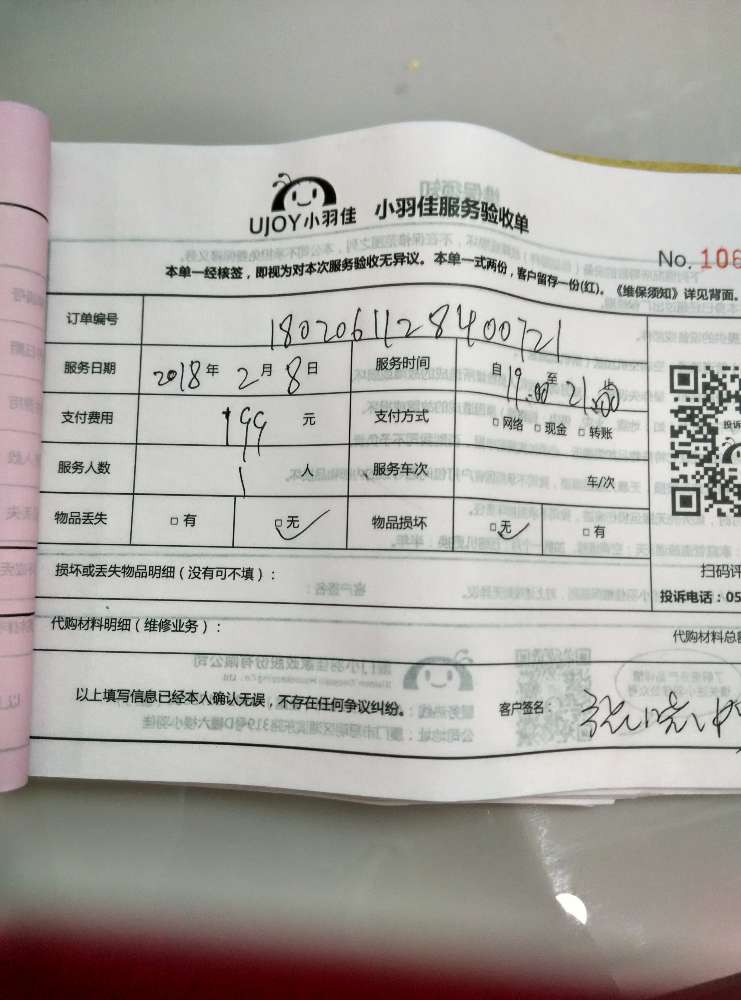 UJOY小羽佳 小羽佳服务验收单
No. 106
本单一经核签，即视为对本次服务验收无异议。本单一式两份，客户留存一份(红)。《维保须知》详见背面。
订单编号 1802061128400721
服务日期 2018年 2月 8日 服务时间 自19:00至21:00
支付费用 199 元 支付方式 □网络 □现金 □转账
服务人数 1 人 服务车次 车/次
物品丢失 □有 □无 物品损坏 □无 □有
损坏或丢失物品明细（没有可不填）：
扫码评
投诉电话：05
代购材料明细（维修业务）：
代购材料总额
以上填写信息已经本人确认无误，不存在任何争议纠纷。 客户签名：